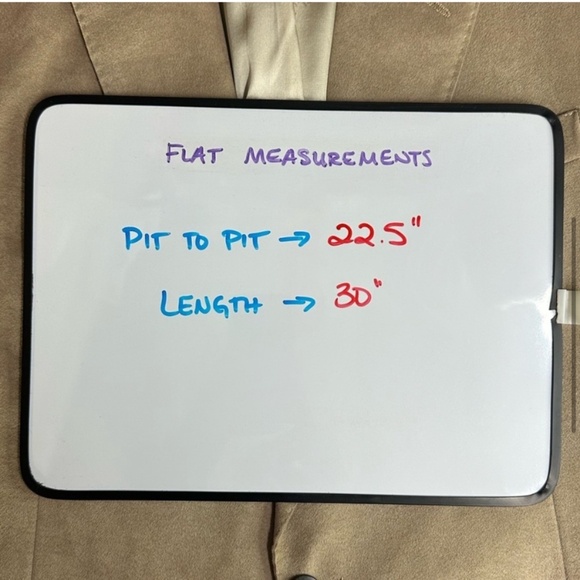 FLAT MEASUREMENTS
PIT TO PIT → 22.5"
LENGTH → 30"